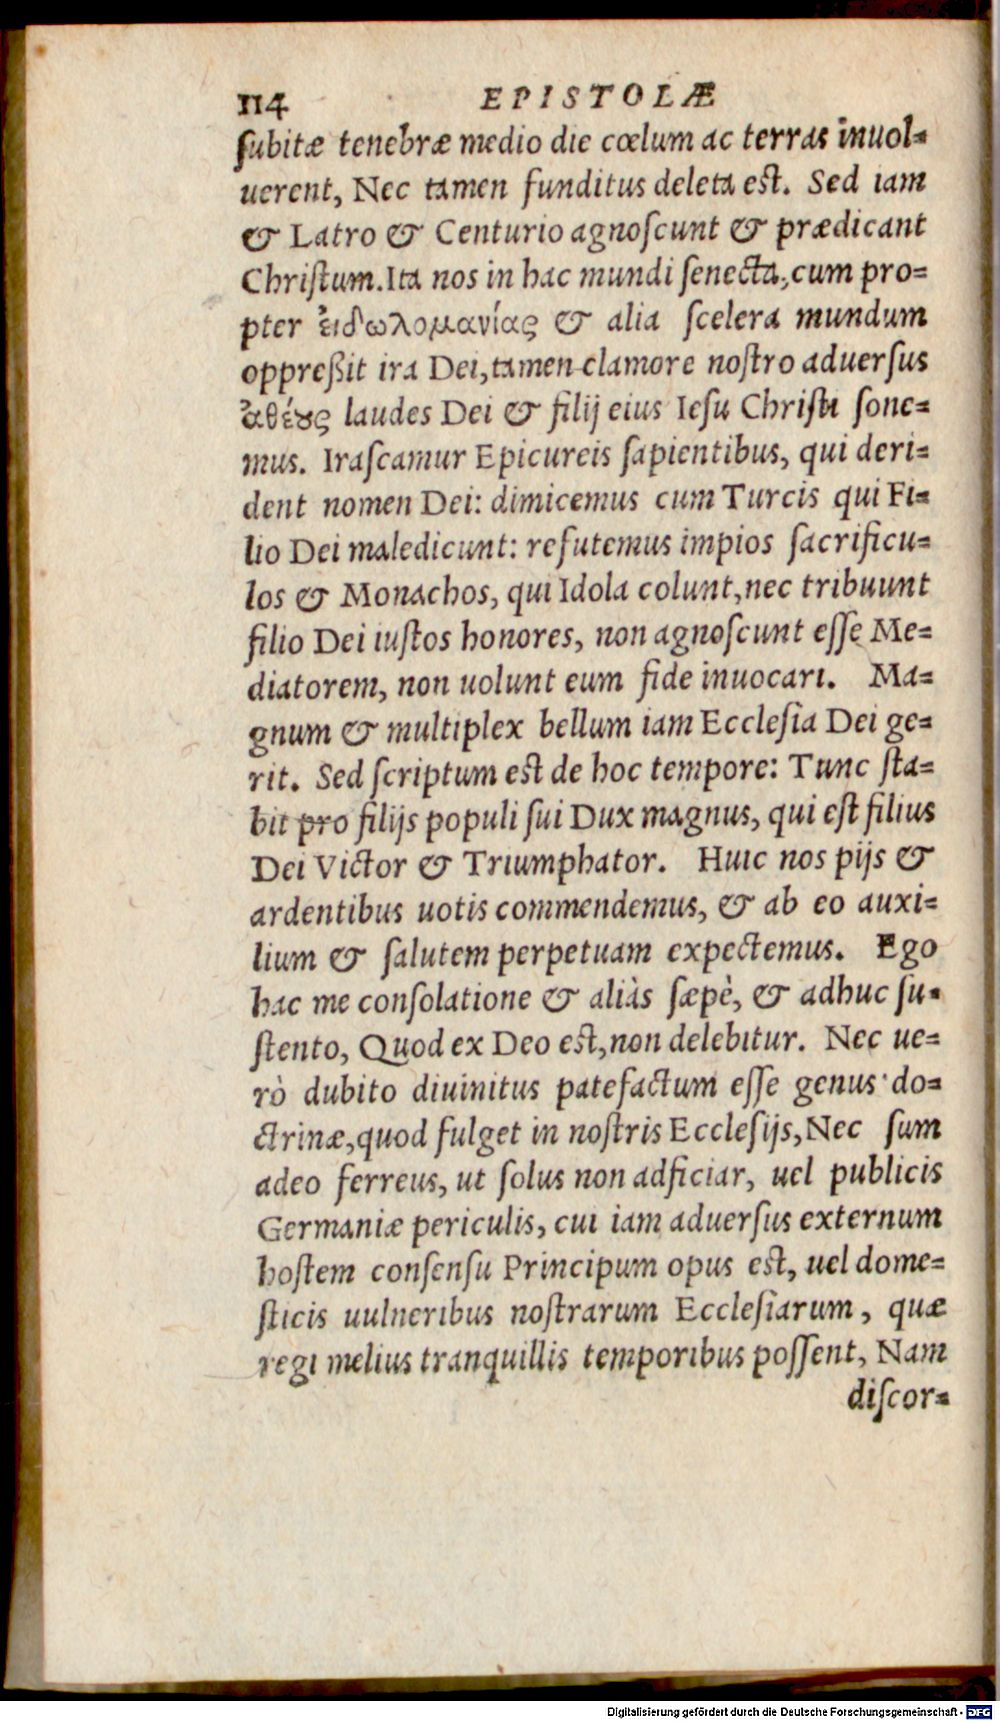 114 EPISTOLÆ
ſubitæ tenebræ medio die cœlum ac terras inuol=
uerent, Nec tamen funditus deleta est. Sed iam
& Latro & Centurio agnoſcunt & prædicant
Chriſtum. Ita nos in hac mundi ſenecta, cum pro=
pter εἰδωλομανίας & alia ſcelera mundum
oppreßit ira Dei, tamen clamore noſtro aduerſus
ἀθέȣς laudes Dei & filij eius Ieſu Chriſti ſone=
mus. Iraſcamur Epicureis ſapientibus, qui deri=
dent nomen Dei: dimicemus cum Turcis qui Fi=
lio Dei maledicunt: refutemus impios ſacrificu=
los & Monachos, qui Idola colunt, nec tribuunt
filio Dei iuſtos honores, non agnoſcunt eſſe Me=
diatorem, non uolunt eum fide inuocari. Ma=
gnum & multiplex bellum iam Eccleſia Dei ge=
rit. Sed ſcriptum eſt de hoc tempore: Tunc ſta=
bit pro filijs populi ſui Dux magnus, qui eſt filius
Dei Victor & Triumphator. Huic nos pijs &
ardentibus uotis commendemus, & ab eo auxi=
lium & ſalutem perpetuam expectemus. Ego
hac me conſolatione & aliàs ſæpè, & adhuc ſu=
ſtento, Quod ex Deo eſt, non delebitur. Nec ue=
rò dubito diuinitus patefactum eſſe genus do=
ctrinæ, quod fulget in noſtris Eccleſijs, Nec ſum
adeo ferreus, ut ſolus non adficiar, uel publicis
Germaniæ periculis, cui iam aduerſus externum
hoſtem conſenſu Principum opus eſt, uel dome=
ſticis uulneribus noſtrarum Eccleſiarum, quæ
regi melius tranquillis temporibus poſſent, Nam
diſcor=
Digitalisierung gefördert durch die Deutsche Forschungsgemeinschaft - DFG